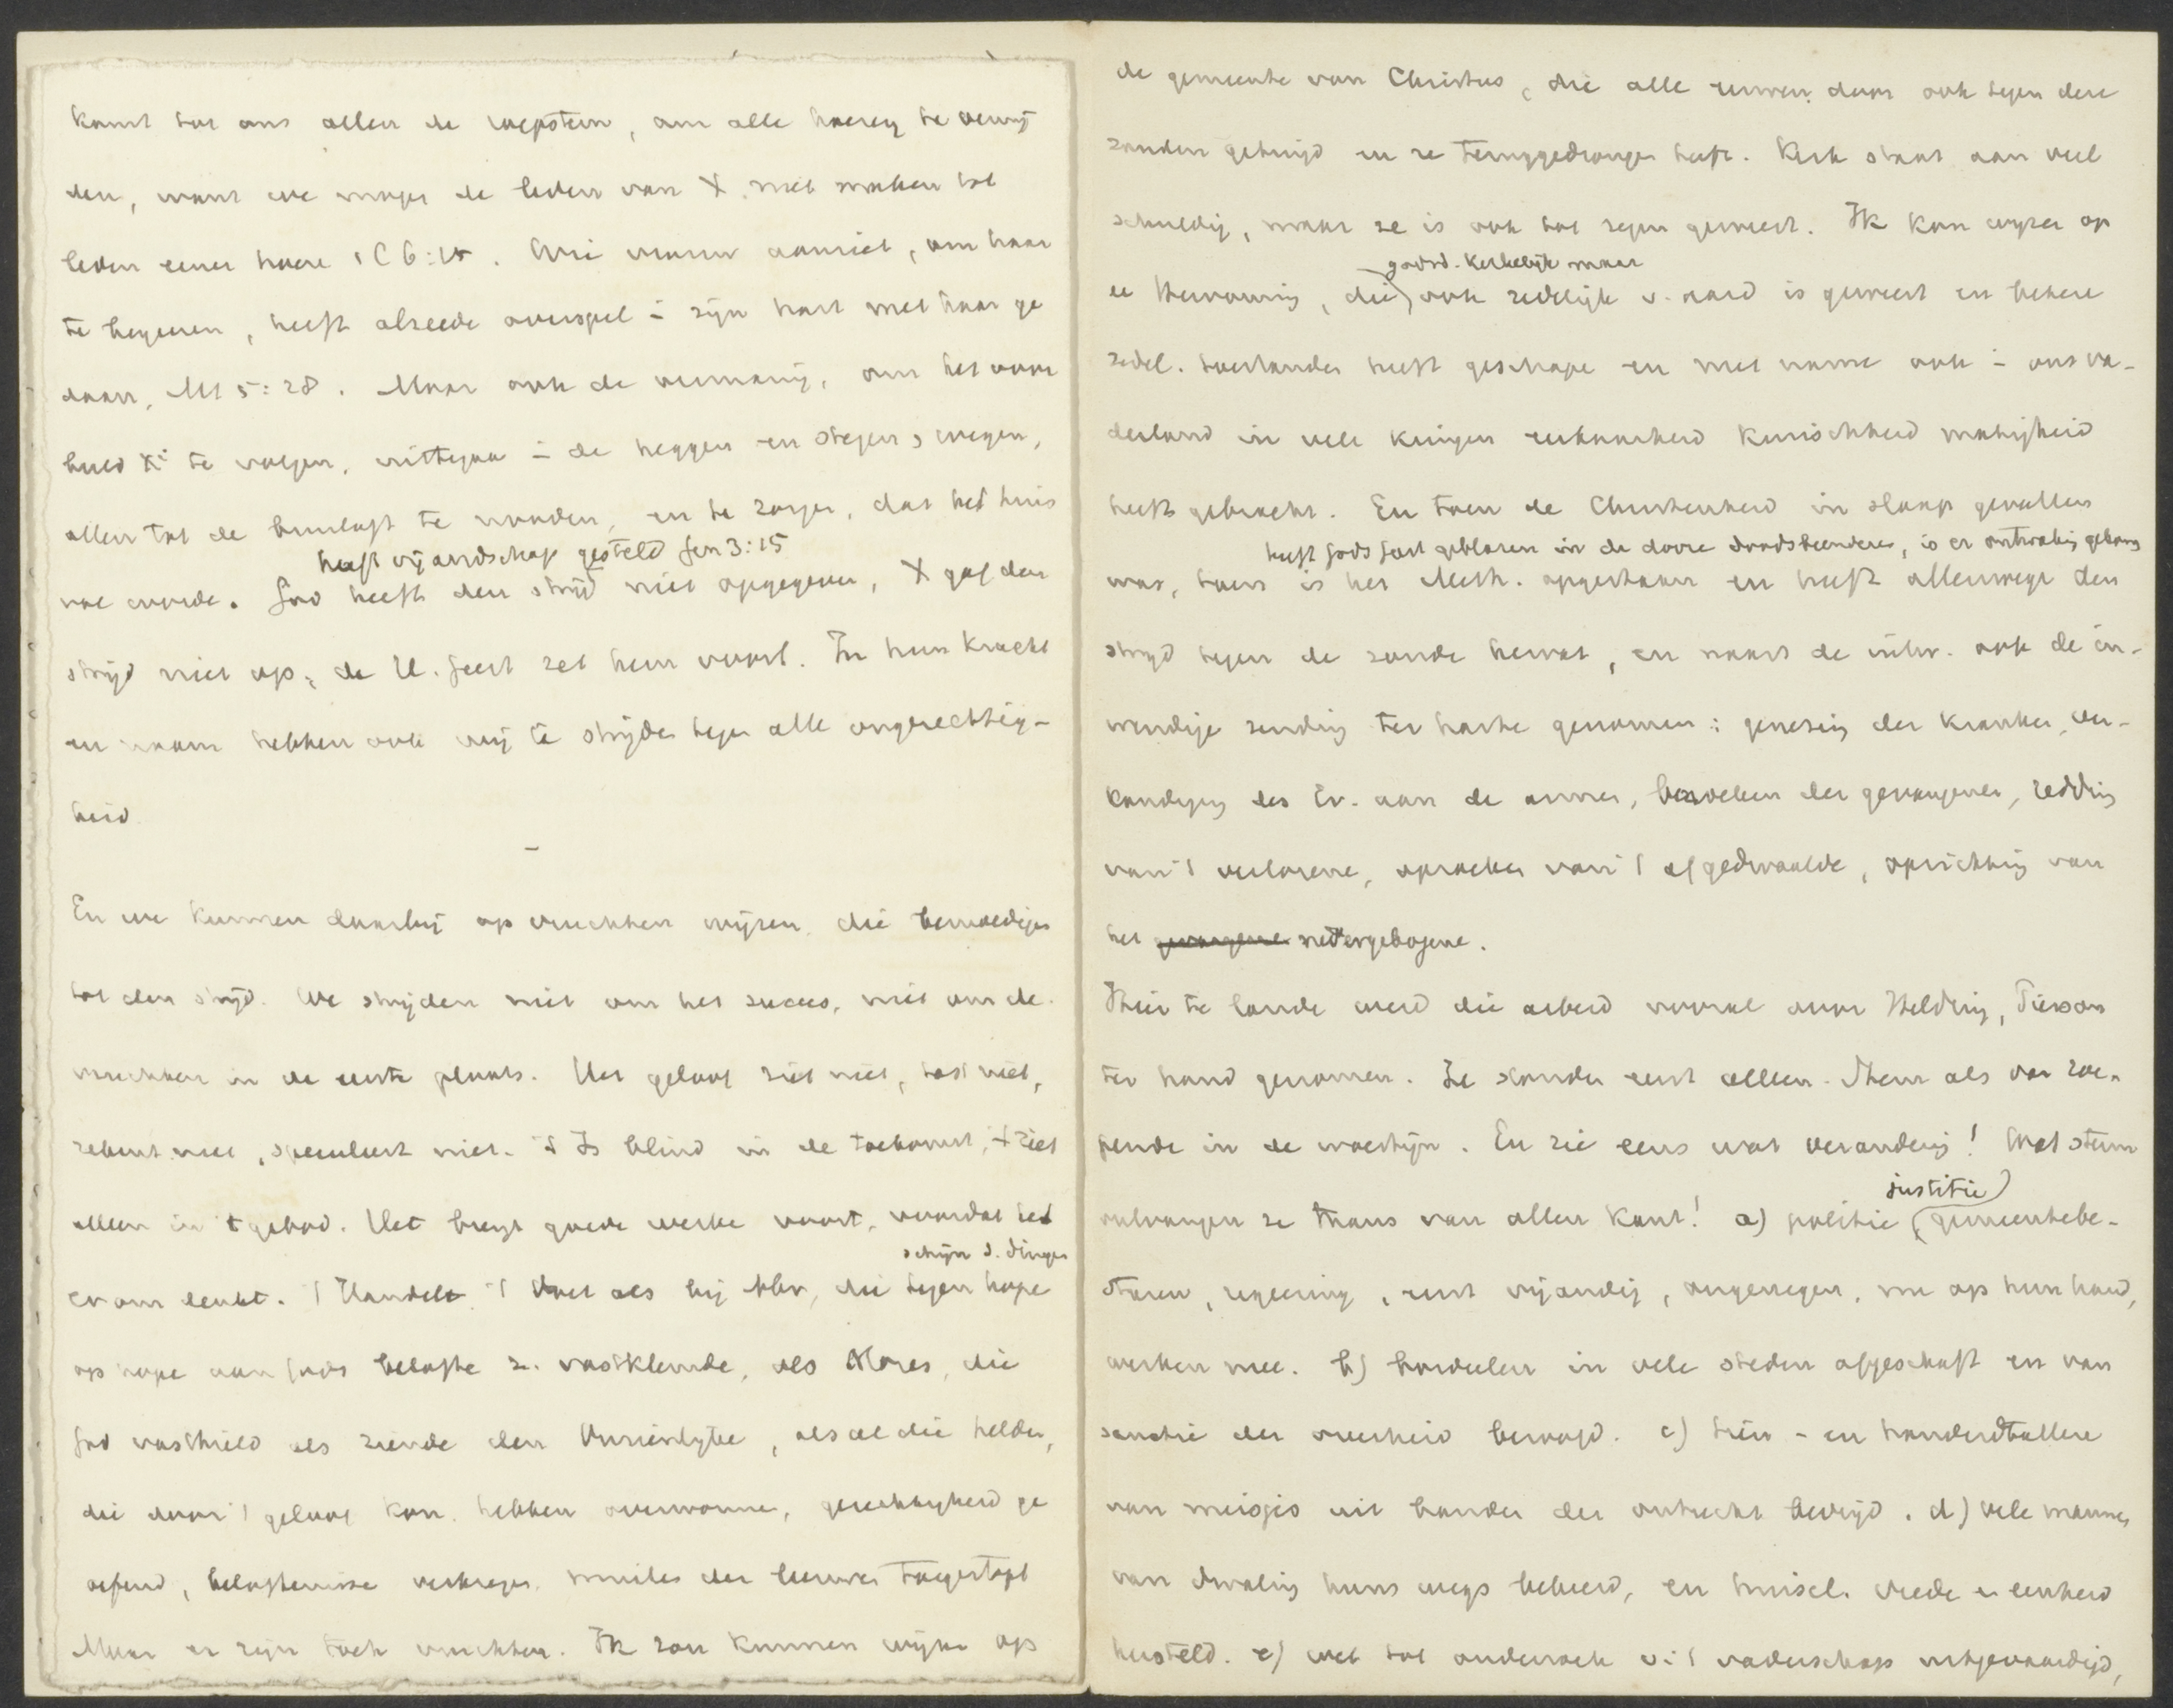 komt tot ons allen de roepstem, om alle hoererij te vermij
den, want we mogen de leden van X niet maken tot
leden eener hoere 1 C 6:15. Wie vrouw aanziet, om haar
te begeeren, heeft alreede overspel i zijn hart met haar ge
daan, Mt 5:28. Maar ook de vermaning, om het voor
beeld te volgen, uittegaan i de heggen en stegen, wegen,
allen tot de bruiloft te nooden, en te zorgen, dat het huis
heeft vijandschap gesteld Gen 3:15
vol worde. God heeft den strijd niet opgegeven, X gaf den
strijd niet op, de H. Geest zet hem voort. In hun kracht
en naam hebben ook wij te strijden tegen alle ongerechtig-
heid
En we kunnen daarbij op vruchten wijzen, die bemoedigen
tot den strijd. We strijden niet om het succes, niet om de
vruchten in de eerste plaats. Het geloof ziet niet, tast niet,
rekent niet, speculeert niet. 't Is blind in de toekomst, 't ziet
alleen in 't gebod. Het brengt goede werken voort, voordat het
schijn d. dingen
er om denkt. 't Handelt 't doet als bij Abr, die tegen hope
op hope aan Gods belofte z. vastklemde, als Mozes, die
God vasthield als ziende den Onzienlijke, als al die helden,
die door 't geloof kon. hebben overwonnen, gerechtigheid ge
oefend, beloftenisse verkregen, muilen der leeuwen toegestopt
Maar er zijn toch vruchten. Ik zou kunnen wijzen op
de gemeente van Christus, die alle eeuwen door ook tegen deze
zonden getuigd en ze teruggedrongen heeft. Kerk staat aan veel
schuldig, maar ze is ook tot zegen geweest. Ik kan wijzen op
godsd. kerkelijk maar
de Hervorming, die ook zedelijk v. aard is geweest en betere
zedel. toestanden heeft geschapen en met name ook i ons va-
derland in vele kringen eerbaarheid kuischheid matigheid
heeft gebracht. En toen de Christenheid in slaap gevallen
heeft Gods Geest geblazen in de dorre doodsbeenderen, is er ontwaking gekomen
was, toen is het Meth. opgestaan en heeft allerwege den
strijd tegen de zonde hervat, en naast de uitw. ook de in-
wendige zending ter harte genomen: genezing der kranken, ver-
kondiging des Ev. aan de armen, bezoeken der gevangenen, redding
van 't verlorene, opzoeken van 't afgedwaalde, oprichting van
het gevangene nedergebogene.
Hier te lande werd die arbeid vooral door Heldring, Pierson
ter hand genomen. Ze stonden eerst alleen. Stem als van roe-
pende in de woestijn. En zie eens wat verandering! Wat steun
justitie
ontvangen ze thans van allen kant! a) politie gemeentebe-
sturen, regeering, eerst vijandig, ongenegen, nu op hun hand,
werken mee. b) bordeelen in vele steden afgeschaft en van
sanctie der overheid beroofd. c) tien- en honderdtallen
van meisjes uit banden der ontucht bevrijd. d) vele mannen
van dwaling huns wegs bekeerd, en huisel. vrede en eenheid
hersteld. e) wet tot onderzoek v. 't vaderschap uitgevaardigd,